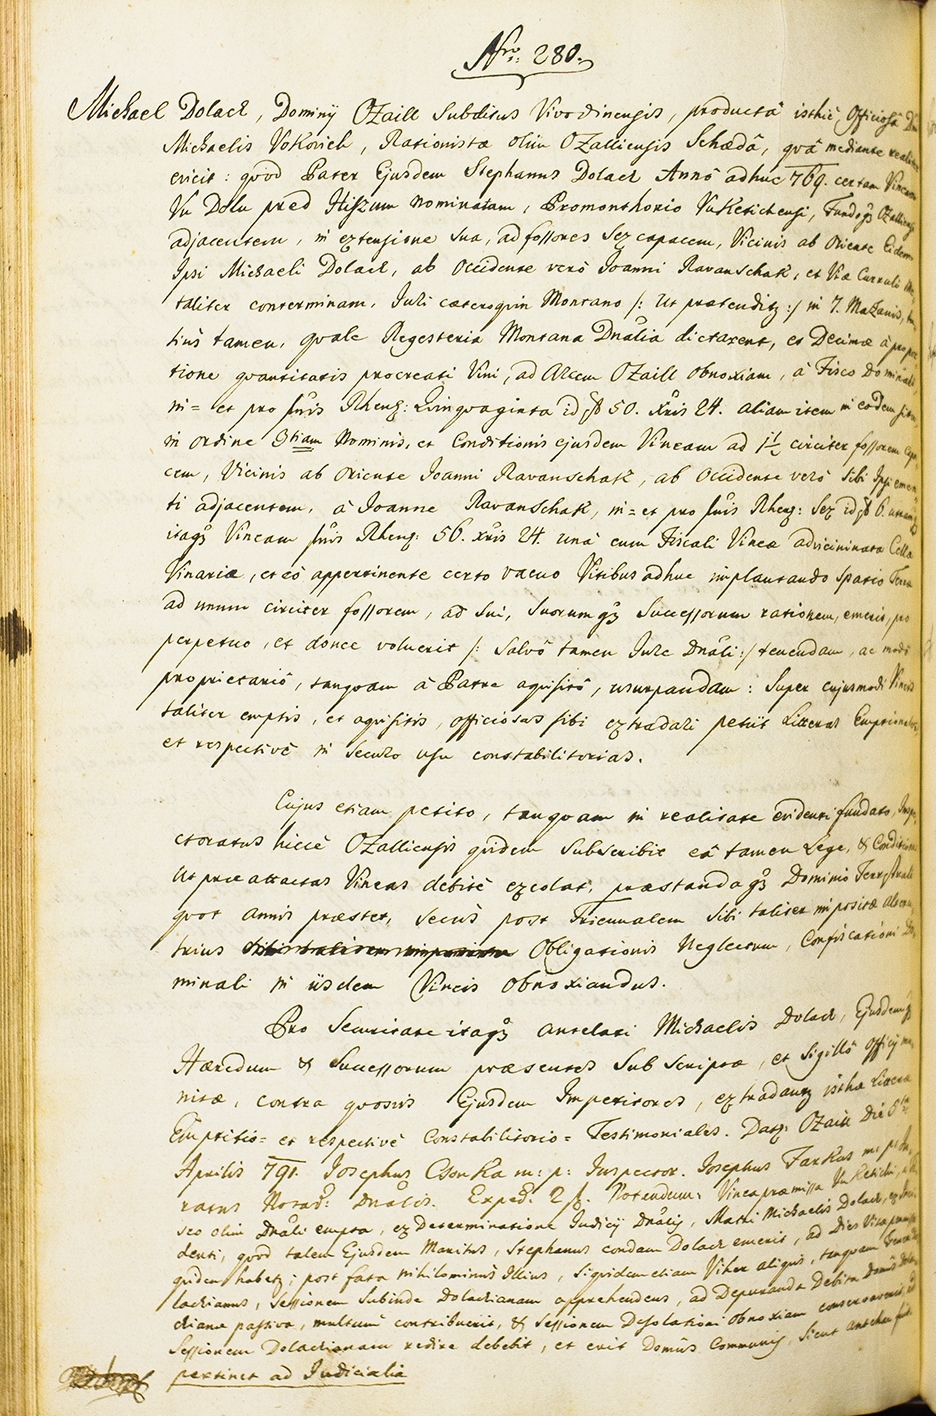 Nro: 280.
Michael Dolack, Dominij Ozaill Subditus Vivodinensis, productâ isthic Officiosâ
Michaelis Vukovich, Rationistæ olim Ozalliensis Schædâ, quâ mediante
evicit: quod Pater Ejusdem Stephanus Dolack Annô adhuc 769. certam Vineam
Vu Dolu pred Hiszum nominatam, Promonthorio Vuketichensi, Fundoqz Ozalliensi
adjacentem, in extensione sua, ad fossores Sex capacem, Vicinis ab Oriente Eidem
Ipsi Michaeli Dolack, ab Occidente verò Joanni Ravanschak, et Viæ Curruli
taliter conterminam, Juri cæteroquin Montano /: Ut prætenditur :/ in 7. Mazanis,
tius tamen, quale Regesteria Montana Dnalia dictarent, et Decimæ à propor
tione quantitatis procreati Vini, ad Arcem Ozaill obnoxiam, à Fisco Dominali
in= et pro fnis Rhens: Quinquaginta id est 50. xris 24. aliam item in eodem situ,
in ordine Etiam Nominis, et Conditionis ejusdem Vineam ad 1 1/2 circiter fossorem capa
cem, Vicinis ab Oriente Joanni Ravanschak, ab Occidente verò sibi Ipsi emen
ti adjacentem, à Joanne Ravanschak, in= et pro fnis Rhens: Sex id est 6.
itaqz Vineam fnis Rhens: 56. xris 24. unà cum Fiscali Vineæ advicinata Cella
Vinariæ, et eò appertinente certo vacuo Vitibus adhuc implantando spatio Terræ
ad unum circiter fossorem, ad sui, suorumqz Successorum rationem, emerit, pro
perpetuo, et donec voluerit /: Salvô tamen Jure Dnali :/ tenendam, ac modô
proprietariô, tanquam à Patre aquisitô, usurpandam: Super cujusmodi Vineis
taliter emptis, et aquisitis, officiosas sibi extradari petiit Litteras Emptionales,
et respective in seculo usu constabilitorias.
Cujus etiam petito, tanquam in realitate evidenti fundato, Inspe
ctoratus hicce Ozalliensis quidem subscribit eâ tamen Lege, & Conditione
Ut præattactas Vineas debitè excolat, præstandaqz Dominio Terrestrali
quot annis præstet, secùs post Triennalem sibi taliter impositæ
trius Obligationis neglectum, Confiscationi Do
minali in iisdem Vineis obnoxiandus.
Pro Securitate itaqz antelati Michaelis Dolack, Ejusdemqz
Hæredum & Successorum præsentes Subscriptæ, et Sigillô Officij mu
nitæ, contra quosvis Ejusdem Impetitores, extradantur isthæ Litteræ
Emptitio= et respectivè Constabilitorio= Testimoniales. Datz: Ozaill Die 6ta
Aprilis 791. Josephus Csonka m: p: Inspector. Josephus Farkas m: p:
ratus Notar: Dnalis. Exped: 2 f. Notandum: Vinea præmissa Vuketichi,
sco olim Dnali empta, ex Determinatione Judicij Dnalis, Matri Michaelis Dolack,
denti, quod talem Ejusdem Maritus, Stephanus condam Dolack emerit, ad Dies Vitæ
quidem habetur; post fata nihilominus Illius, siquidem etiam Vither aliquis, tanquam
lackianus, Sessionem subinde Dolackianam apprehendens, ad Depuranda Debita Domus
ckianæ passiva, multum contribuerit, & Sessionem Desolationi obnoxiam conservaverit,
Sessionem Dolackianam redire debebit, et erit Domûs Communis, sicut antehac fuit
pertinet ad Judicialia